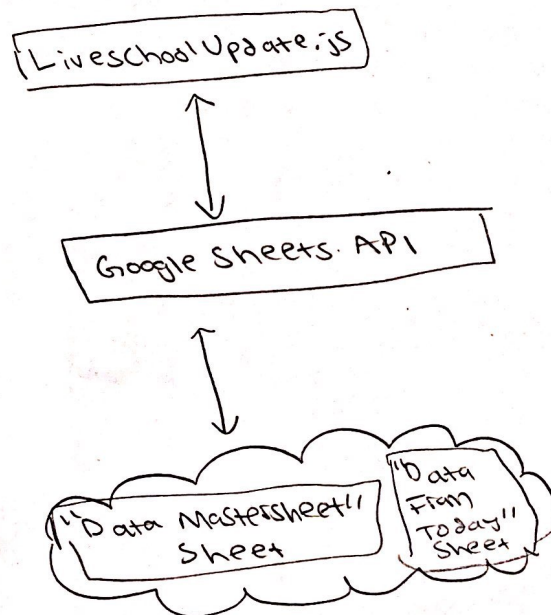 LiveschoolUpdate.js
Google Sheets API
"Data Mastersheet"
Sheet
"Data
From
Today"
Sheet